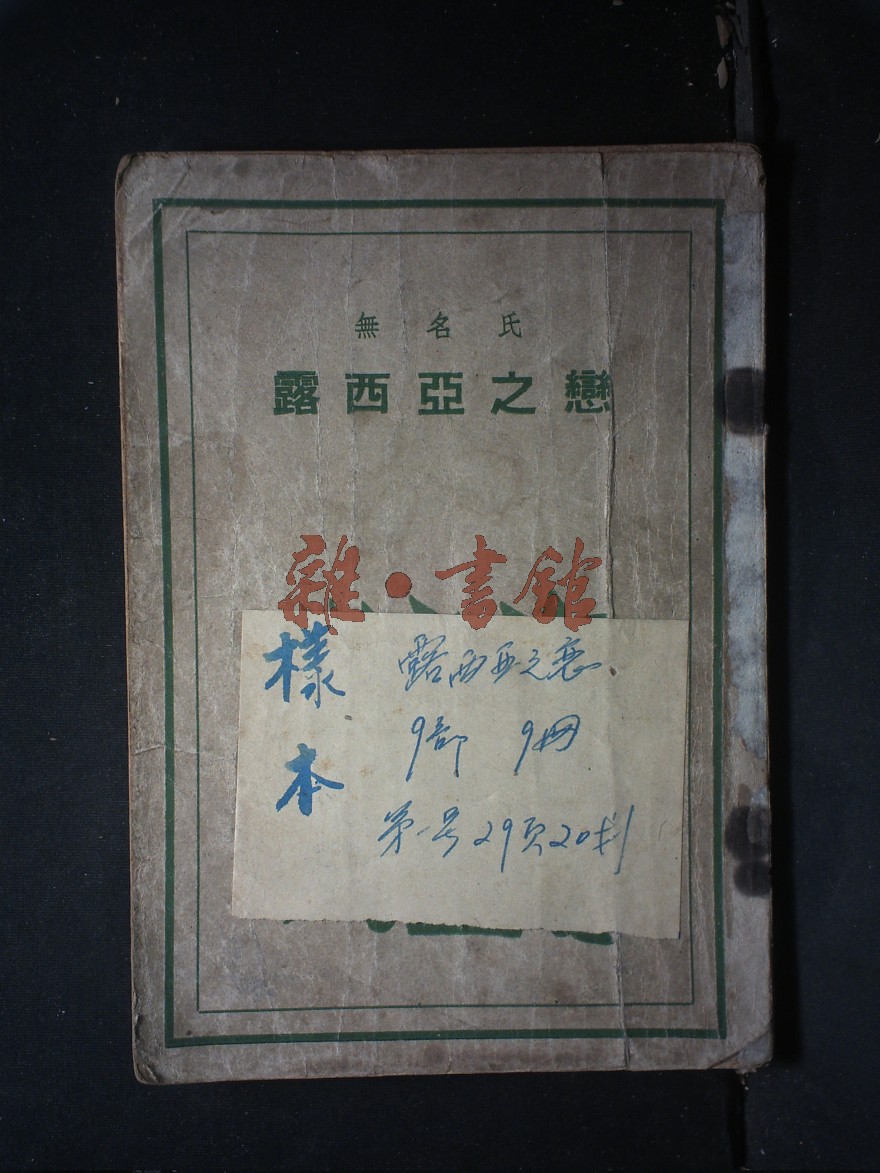 無名氏
露西亞之戀
雜·書館
樣本
露西亞之恋
9部 9册
第一号29頁20